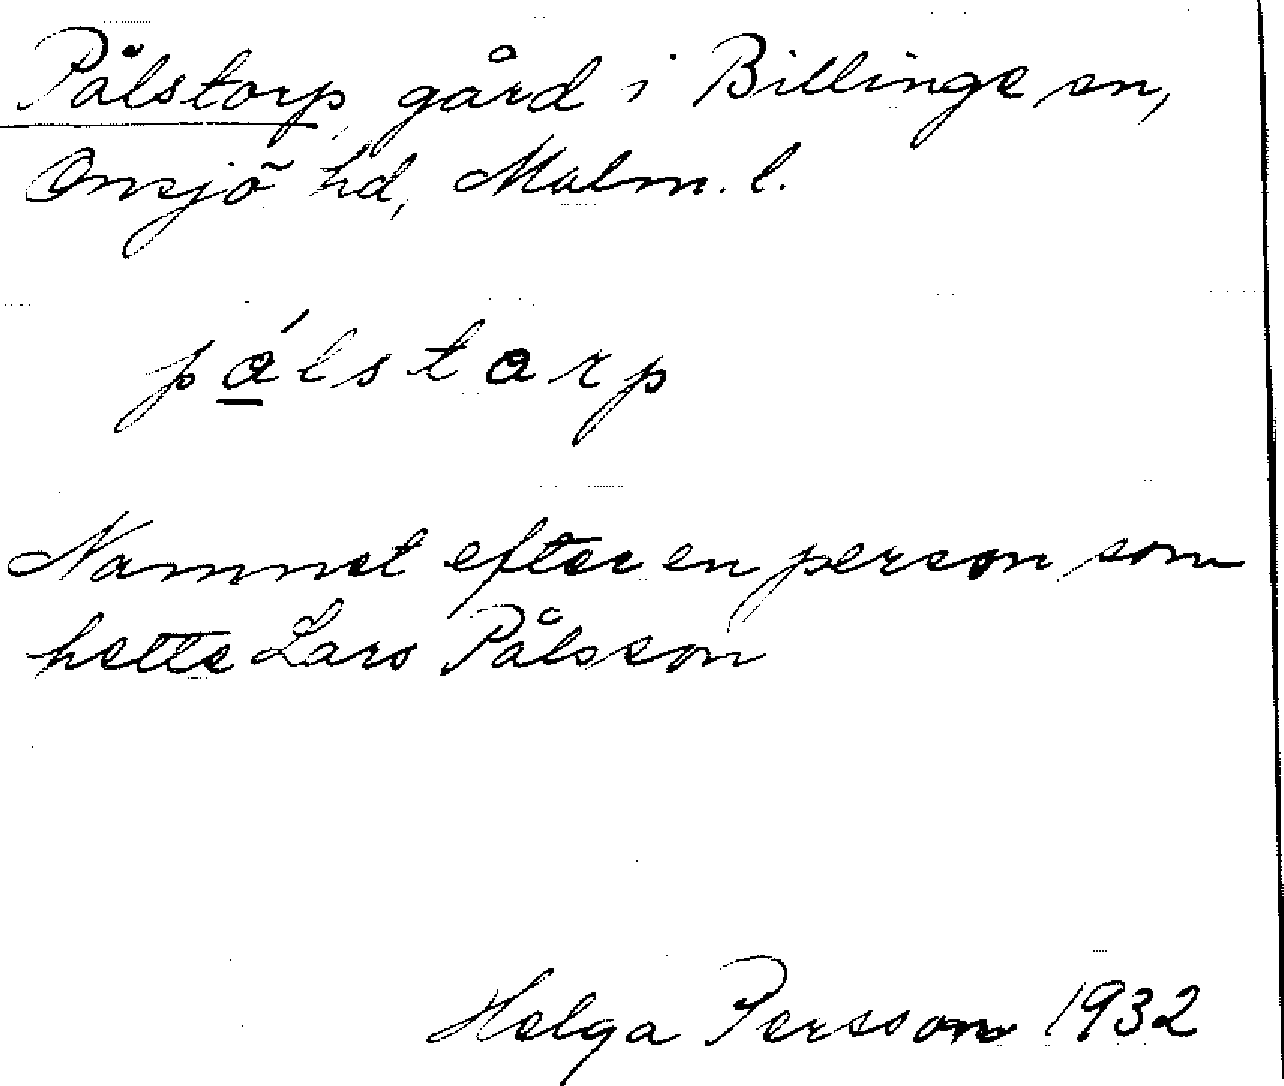 Pålstorp, gård i Billinge sn,
Onsjö hd, Malm. l.
pálstorp
Namnet efter en person som
hette Lars Pålsson
Helga Persson 1932